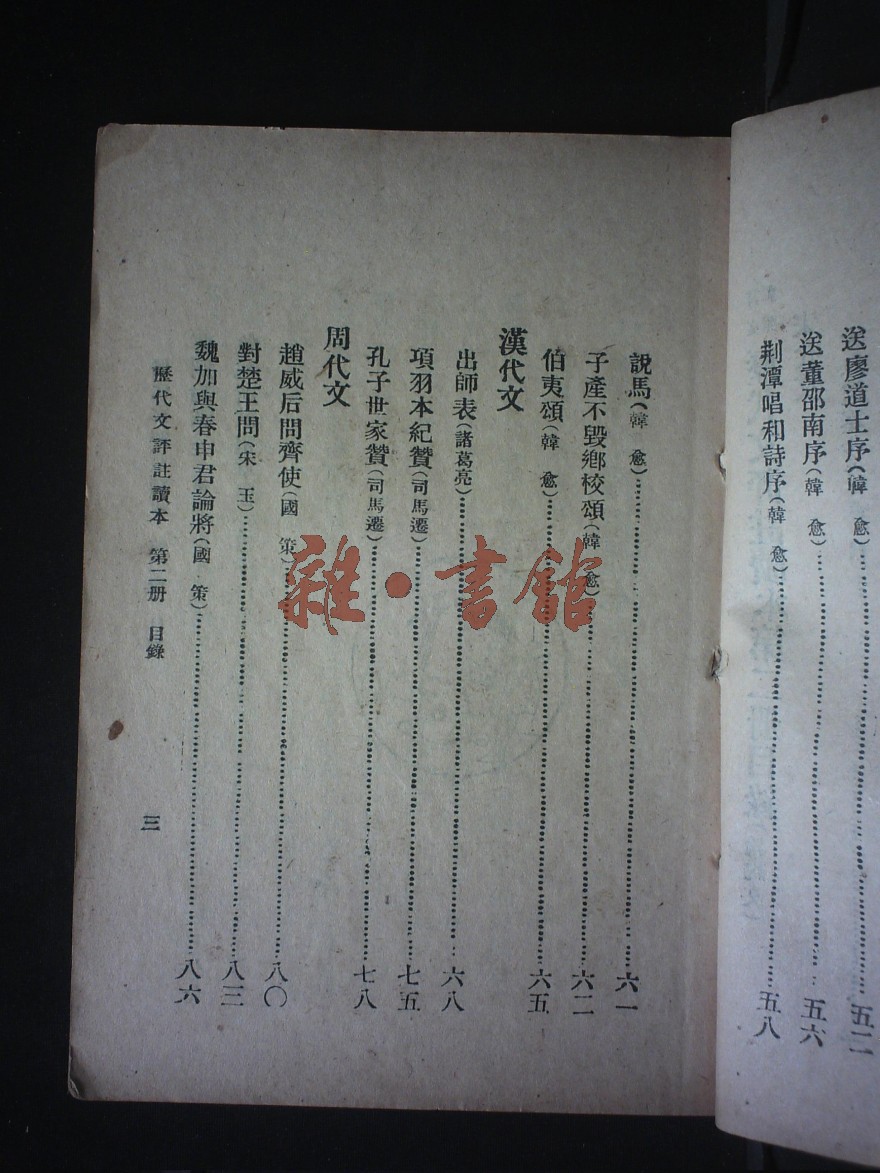 送廖道士序(韓　愈)……五二
送董邵南序(韓　愈)……五六
荆潭唱和詩序(韓　愈)……五八
説馬(韓　愈)……六一
子產不毀鄉校頌(韓　愈)……六二
伯夷頌(韓　愈)……六五
漢代文
出師表(諸葛亮)……六八
項羽本紀贊(司馬遷)……七五
孔子世家贊(司馬遷)……七八
周代文
趙威后問齊使(國　策)……八〇
對楚王問(宋　玉)……八三
魏加與春申君論將(國　策)……八六
歷代文評註讀本　第二册　目錄
三
雜·書館